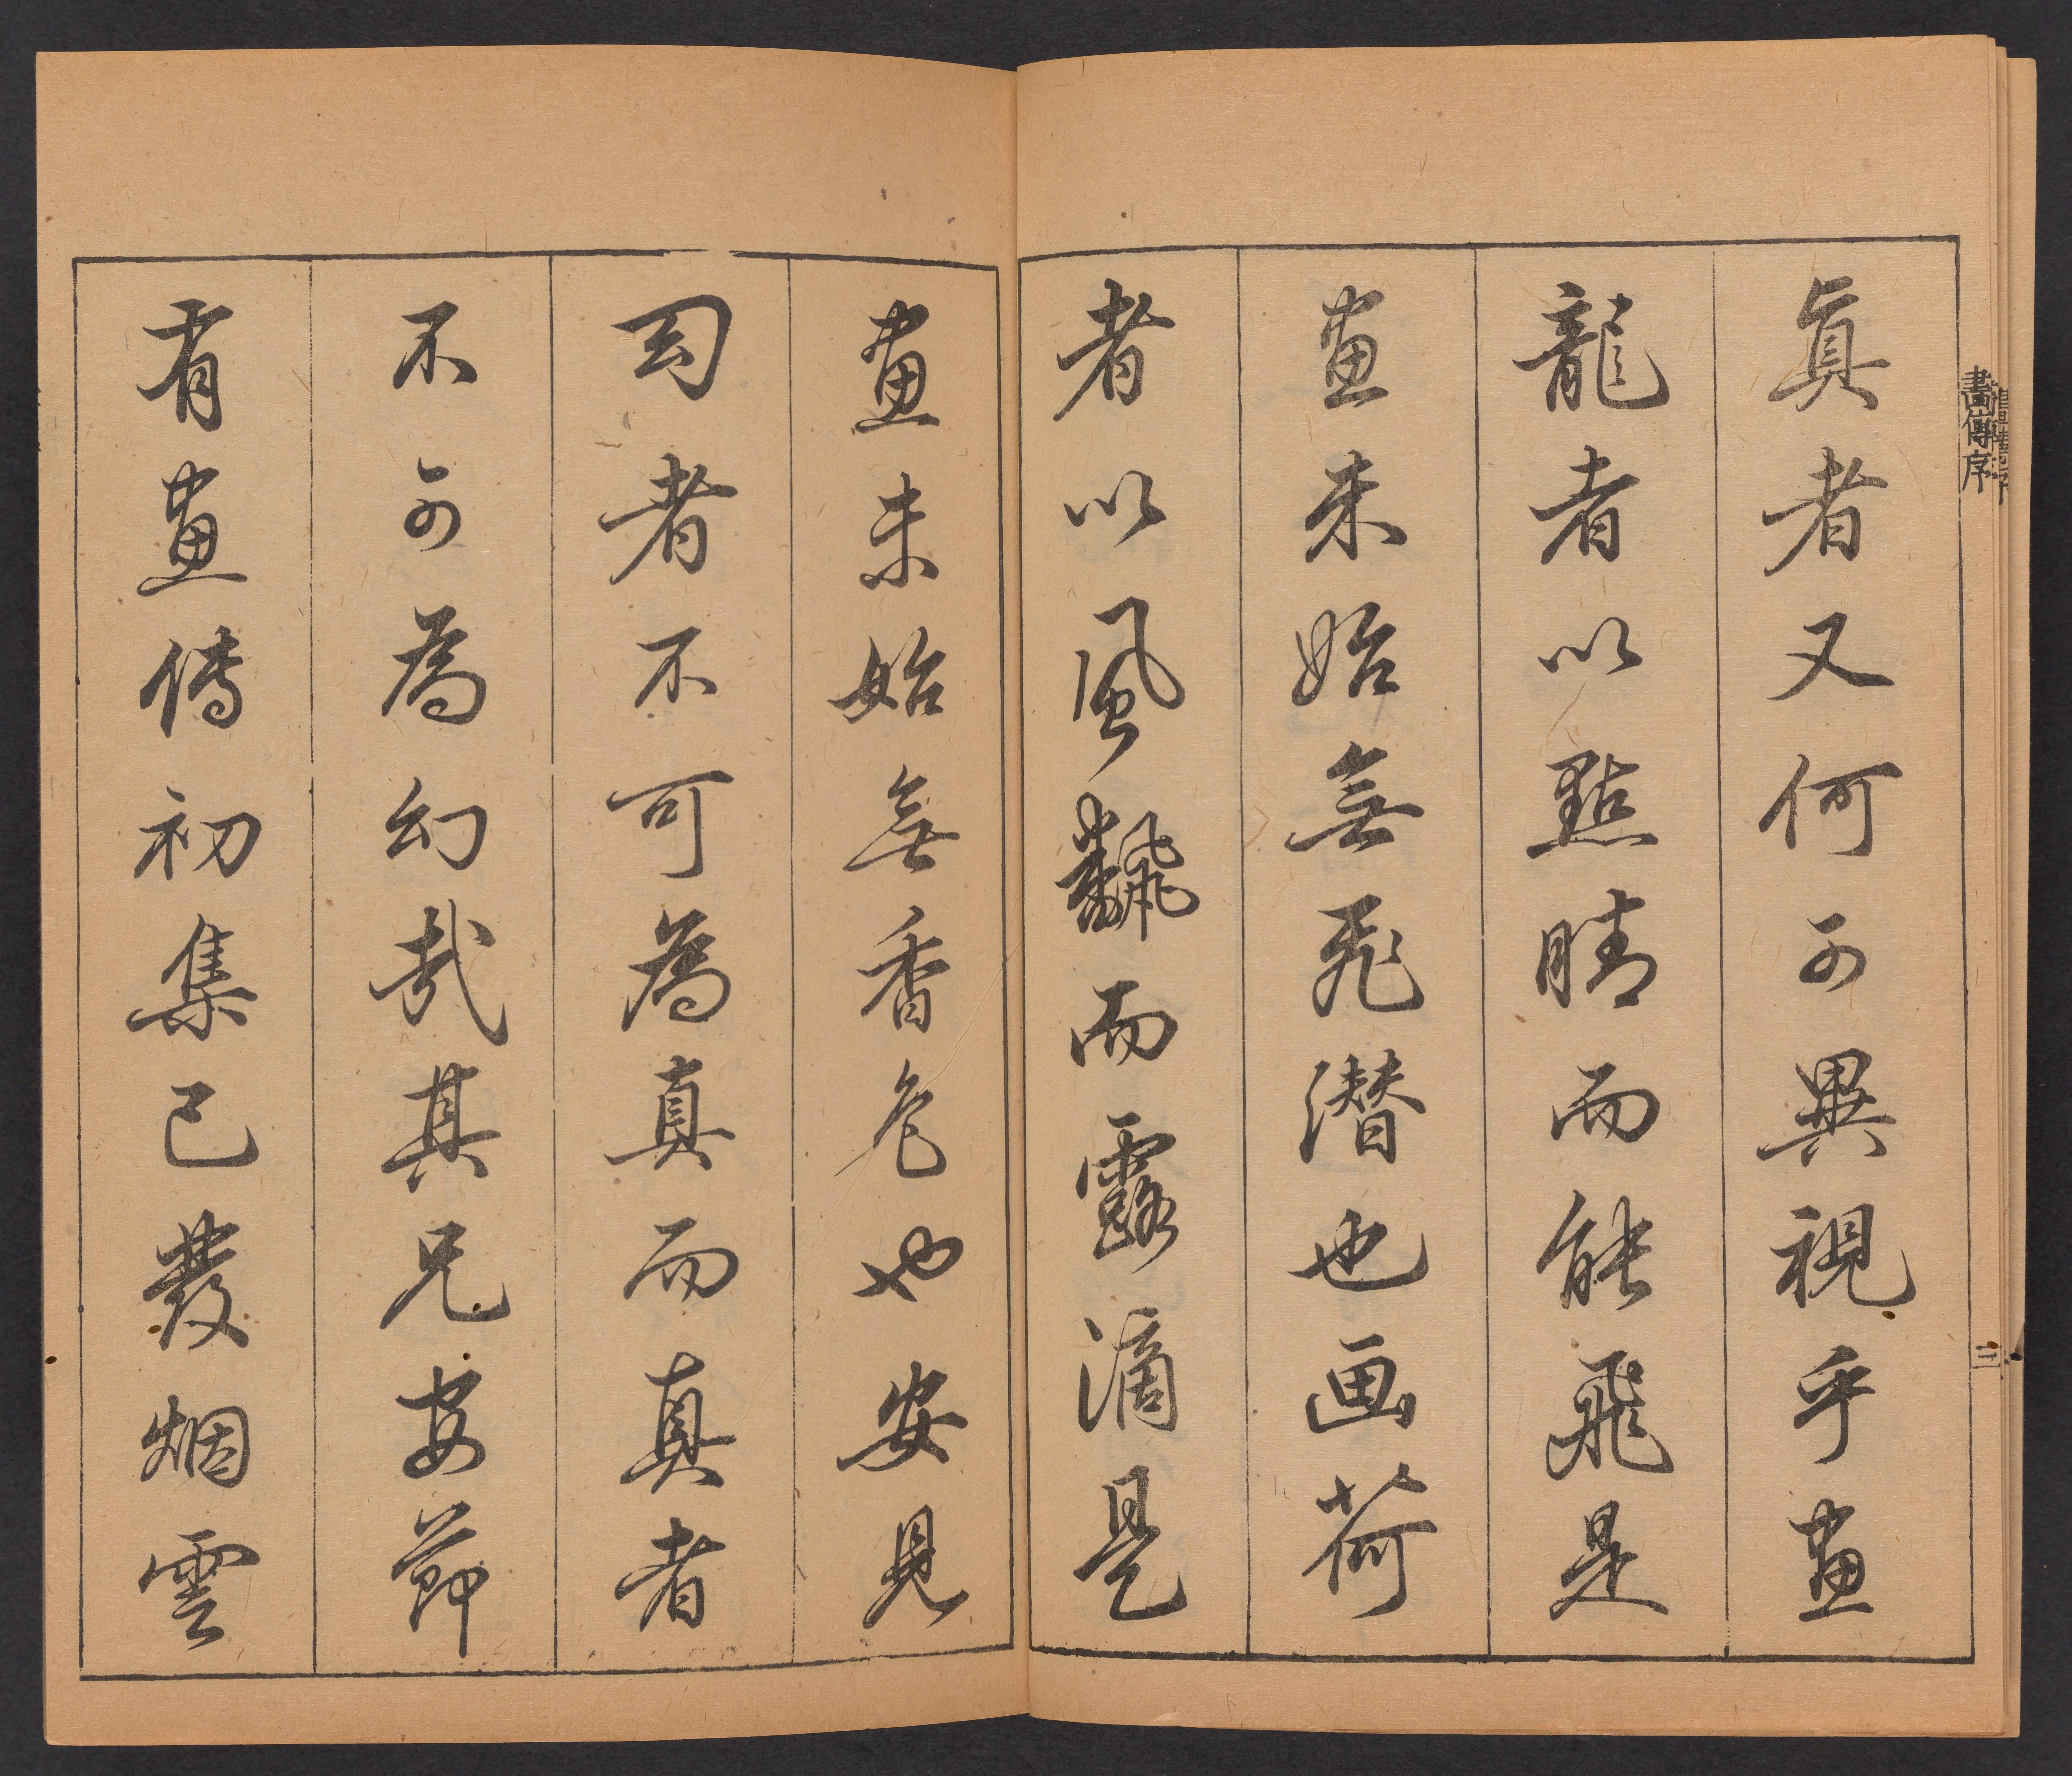 畫傳序
真者又何可異視乎畫
龍者以點睛而能飛是
畫未始無飛潛也画荷
者以風飜而露滴是
畫未始無香色也安見
幻者不可為真而真者
不可為幻哉其兄安節
有畫傳初集已發烟雲